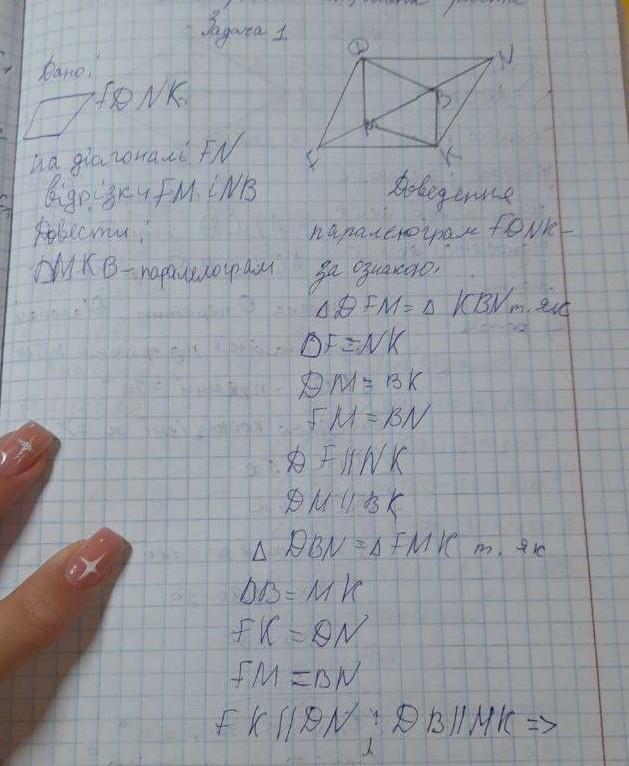 Задача 1
Дано:
FDNK.
на діагоналі FN
відрізки FM і NB
Довести:
DMKB - паралелограм
D
N
B
M
F
K
Доведення
паралелограм FDNK -
за ознакою.
△ DFM = △ KBN т. як
DF = NK
DM = BK
FM = BN
DF || NK
DM || BK
△ DBN = △ FMK т. як
DB = MK
FK = DN
FM = BN
FK || DN і DB || MK =>